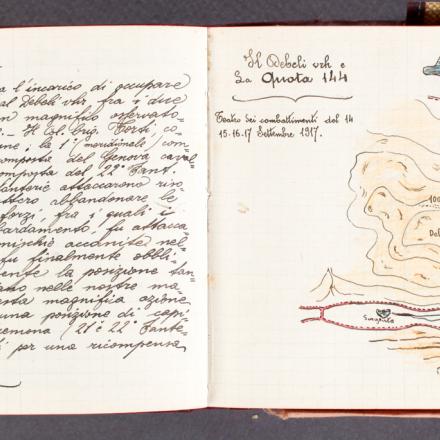 a l'incarico di occupare
al Debeli vhr fra i due
un magnifico osservato=
o. - Il Col. brig. Torti, co=
une; la 1ª (meridionale) com=
composta del Genova caval=
composta del 22° Fant.
fanterie attaccarono riso=
ttero abbandonare le
forzi, fra i quali il
bardamento, fu attacca=
mischie accanite nel=
fu finalmente obbli=
ente la posizione tan=
ano nelle nostre ma=
esta magnifica azione
una posizione di capi=
remona (21° e 22° Fante=
ti per una ricompensa
Il Debeli vrh e
La Quota 144
Teatro dei combattimenti del 14
15-16-17 Settembre 1917.
100
Deb